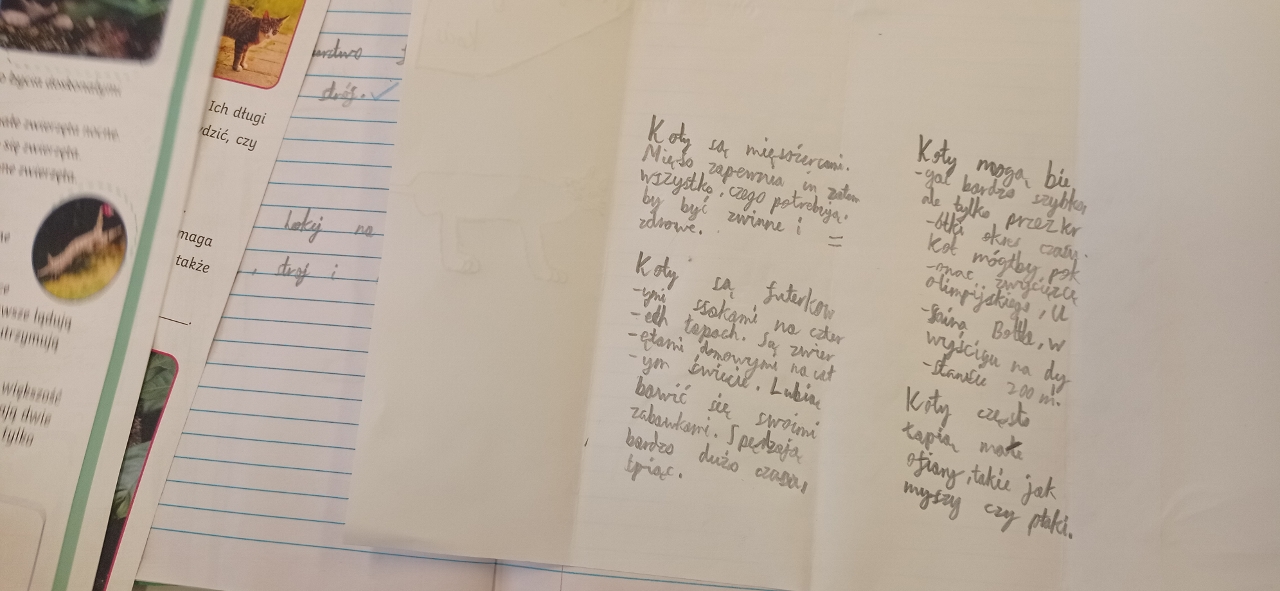 o byciu doskonałymi
małe zwierzęta nocne.
się zwierzęta.
ne zwierzęta.
ne
ce
wsze lądują
utrzymują
większość
ają dwie
tylko
Ich długi
dzić, czy
maga
także
stróż.
hokej na
, stróż i
Koty są mięsożercami.
Mięso zapewnia im
wszystko, czego potrebują,
by być zwinne i =
zdrowe.
Koty są futerkow
-ymi ssakami na czter
-ech łapach. Są zwier
-ętami domowymi na cał
-ym świecie. Lubią
bawić się swoimi
zabawkami. Spędzają
bardzo dużo czasu,
śpiąc.
Koty mogą bie
-gać bardzo szybko,
ale tylko przez kr
-ótki okres czasu.
Kot mógłby pok
-onać zwycięzcę
olimpijskiego, U
-saina Bolta, w
wyścigu na dy
-stansie 200 m.
Koty często
łapią małe
ofiary, takie jak
myszy czy ptaki.